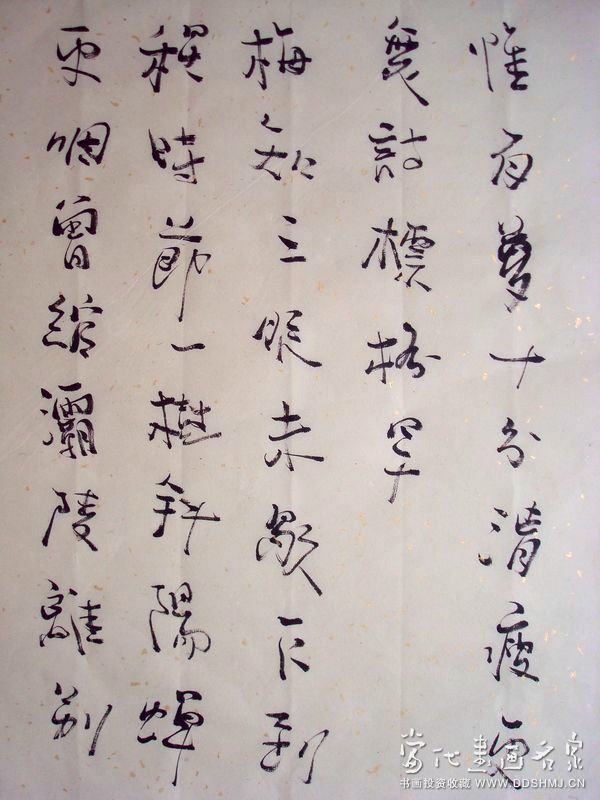 惟有夢十分清瘦更
兼詩標格早
梅知三眠未歇乍到
秋時節一樹斜陽蟬
更咽曾綰灞陵離別
當代書畫名家
书画投资收藏 WWW.DDSHMJ.CN